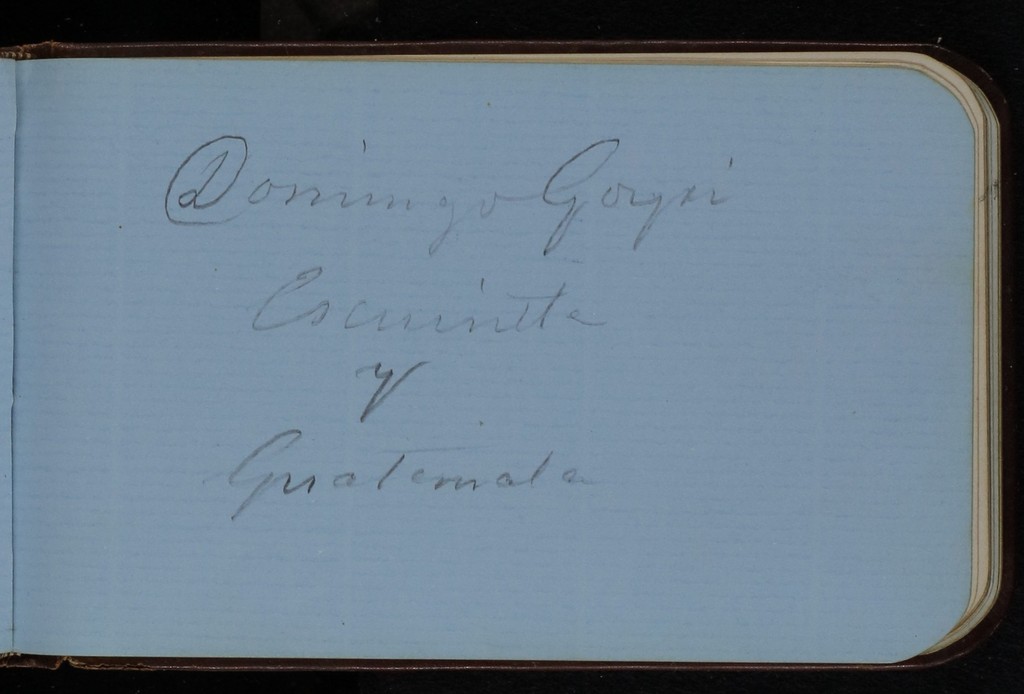 Domingo Goyri
Escuintla
y
Guatemala